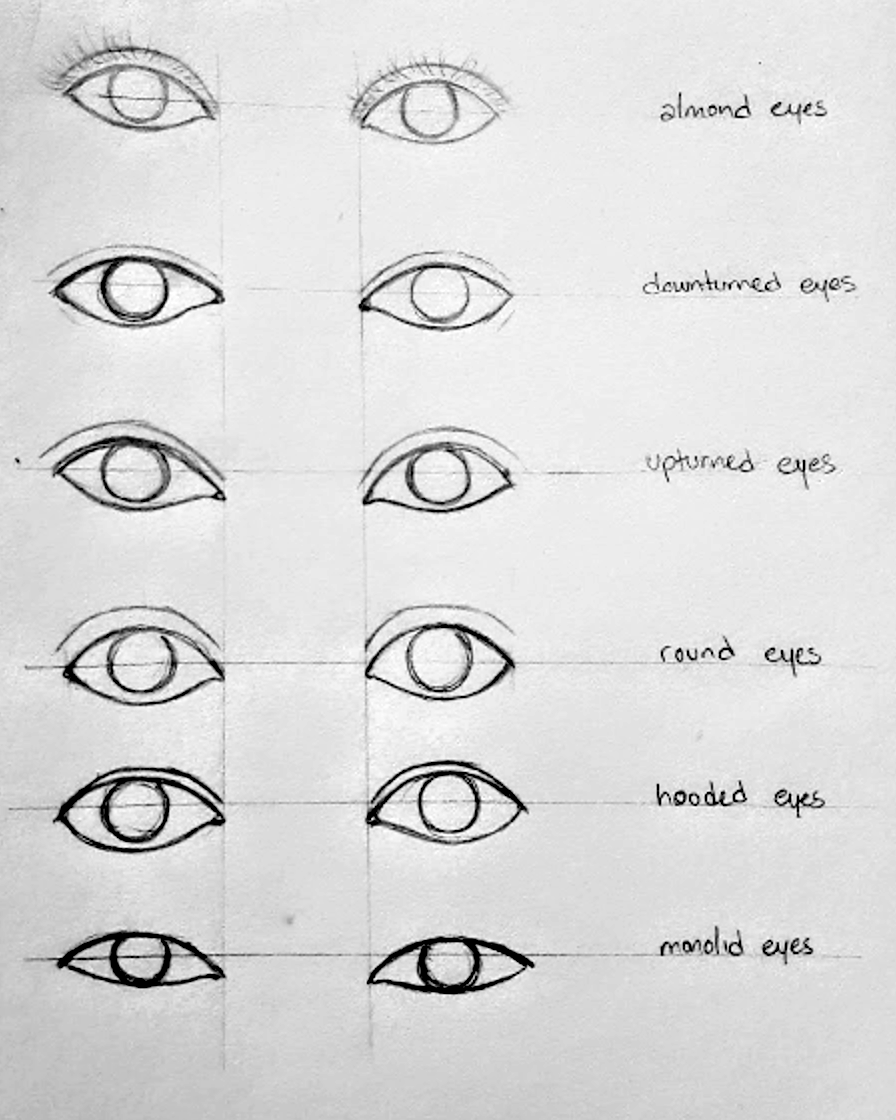 almond eyes
downturned eyes
upturned eyes
round eyes
hooded eyes
monolid eyes